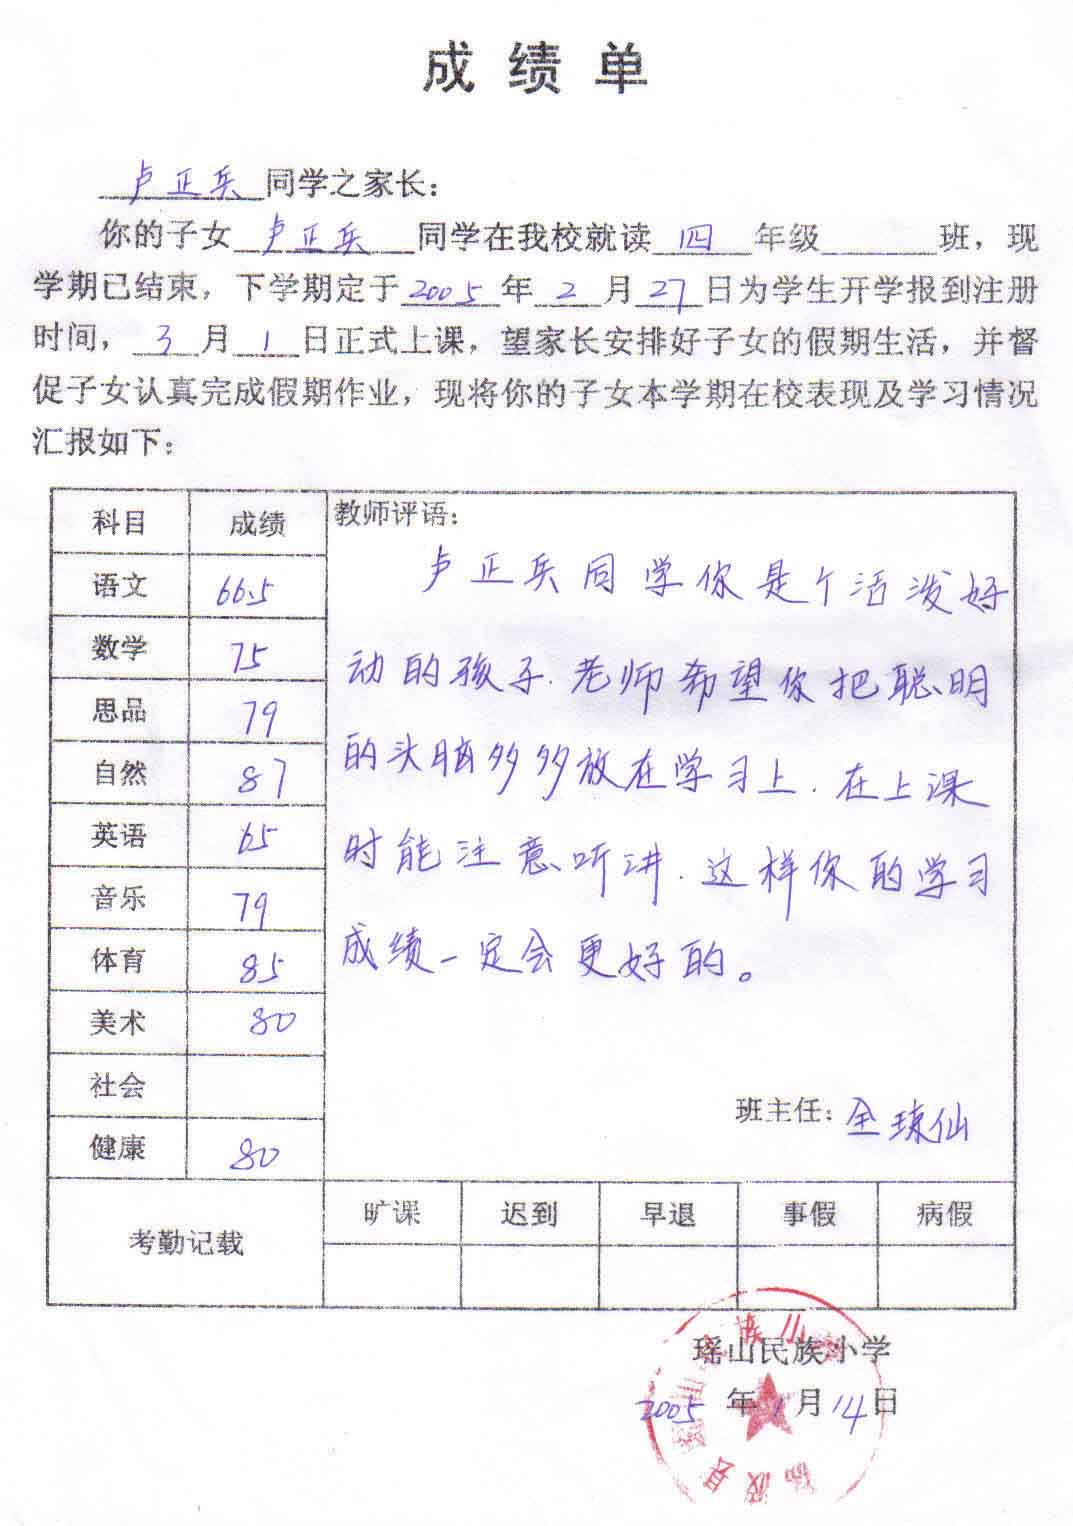 成绩单
卢正兵同学之家长：
你的子女卢正兵同学在我校就读四年级 班，现
学期已结束，下学期定于2005年2月27日为学生开学报到注册
时间，3月1日正式上课，望家长安排好子女的假期生活，并督
促子女认真完成假期作业，现将你的子女本学期在校表现及学习情况
汇报如下：
科目 成绩 教师评语：
语文 66.5
数学 75
思品 79
自然 87
英语 65
音乐 79
体育 85
美术 80
社会
健康 80
卢正兵同学你是个活泼好
动的孩子.老师希望你把聪明
的头脑多多放在学习上.在上课
时能注意听讲.这样你的学习
成绩一定会更好的。
班主任：全琼仙
考勤记载 旷课 迟到 早退 事假 病假
瑶山民族小学
2005年1月14日